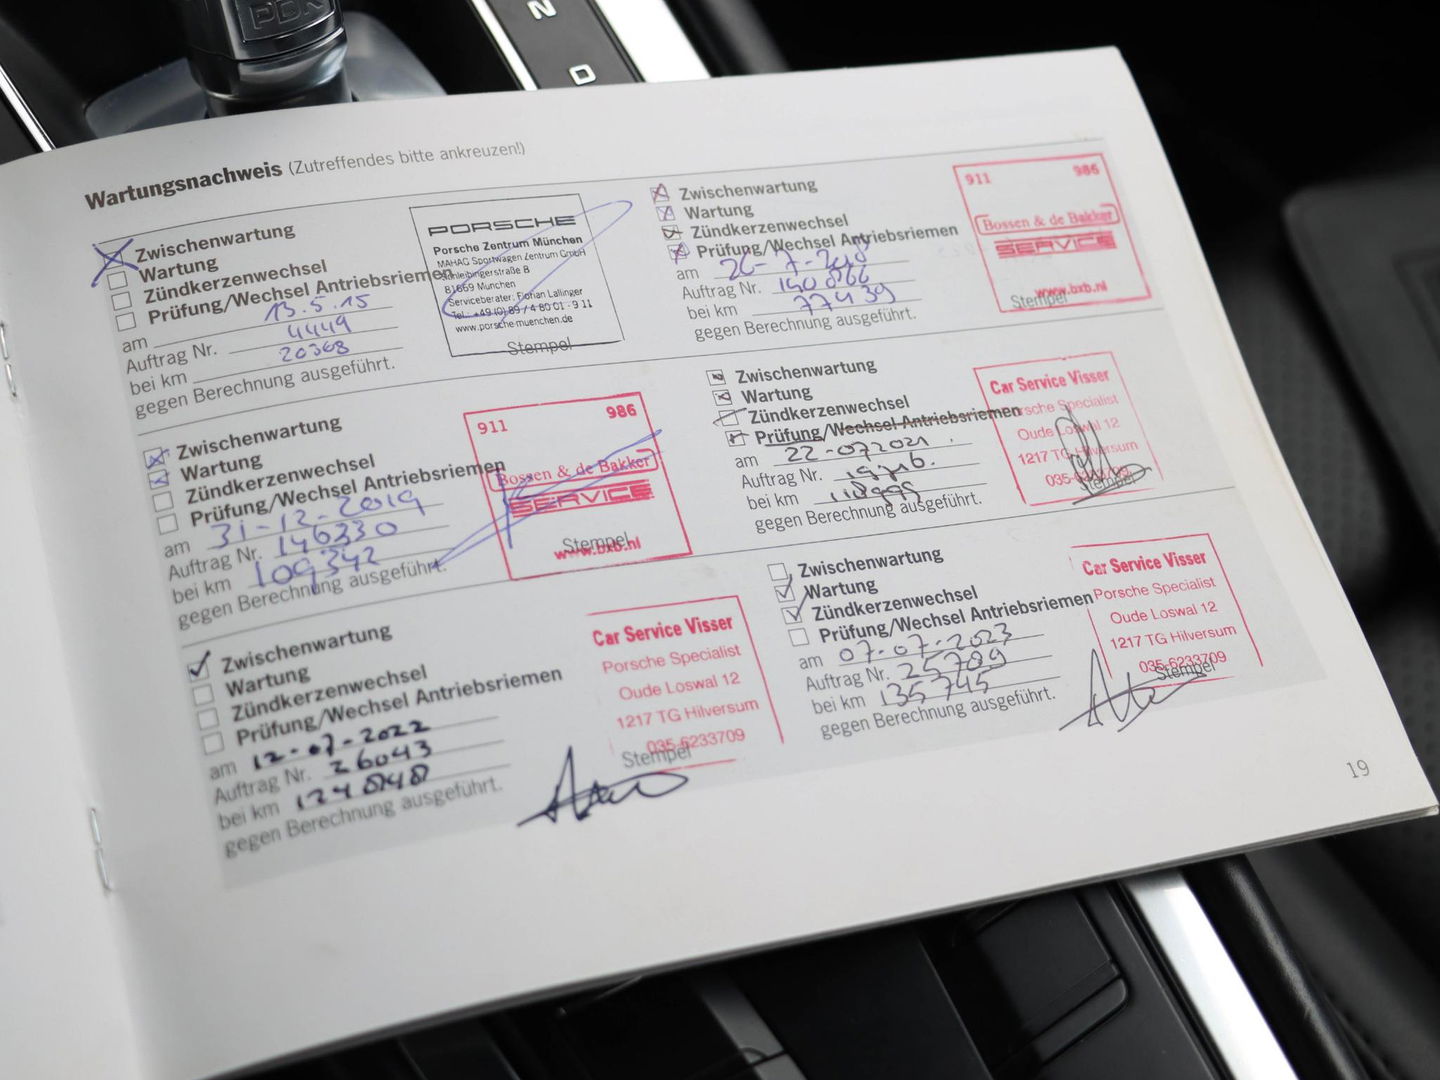 PDK
N
D
Wartungsnachweis (Zutreffendes bitte ankreuzen!)
Zwischenwartung
Wartung
Zündkerzenwechsel
Prüfung/Wechsel Antriebsriemen
am 13.5.15
Auftrag Nr. 4449
bei km 20368
gegen Berechnung ausgeführt.
PORSCHE
Porsche Zentrum München
MAHAG Sportwagen Zentrum GmbH
Schleibingerstraße 8
81669 München
Serviceberater: Florian Lallinger
Tel.: +49 (0) 89 / 4 80 01 - 9 11
www.porsche-muenchen.de
Stempel
Zwischenwartung
Wartung
Zündkerzenwechsel
Prüfung/Wechsel Antriebsriemen
am 26-7-2018
Auftrag Nr. 140866
bei km 77439
gegen Berechnung ausgeführt.
911 986
Bossen & de Bakker
SERVICE
www.bxb.nl
Stempel
Zwischenwartung
Wartung
Zündkerzenwechsel
Prüfung/Wechsel Antriebsriemen
am 31-12-2019
Auftrag Nr. 146330
bei km 109342
gegen Berechnung ausgeführt.
911 986
Bossen & de Bakker
SERVICE
www.bxb.nl
Stempel
Zwischenwartung
Wartung
Zündkerzenwechsel
Prüfung/Wechsel Antriebsriemen
am 22-072021
Auftrag Nr.
bei km
gegen Berechnung ausgeführt.
Car Service Visser
Porsche Specialist
Oude Loswal 12
1217 TG Hilversum
035-6233709
Stempel
Zwischenwartung
Wartung
Zündkerzenwechsel
Prüfung/Wechsel Antriebsriemen
am 12-07-2022
Auftrag Nr. 26043
bei km 124848
gegen Berechnung ausgeführt.
Car Service Visser
Porsche Specialist
Oude Loswal 12
1217 TG Hilversum
035-6233709
Stempel
Zwischenwartung
Wartung
Zündkerzenwechsel
Prüfung/Wechsel Antriebsriemen
am 07-07-2023
Auftrag Nr. 25789
bei km 135745
gegen Berechnung ausgeführt.
Car Service Visser
Porsche Specialist
Oude Loswal 12
1217 TG Hilversum
035-6233709
Stempel
19